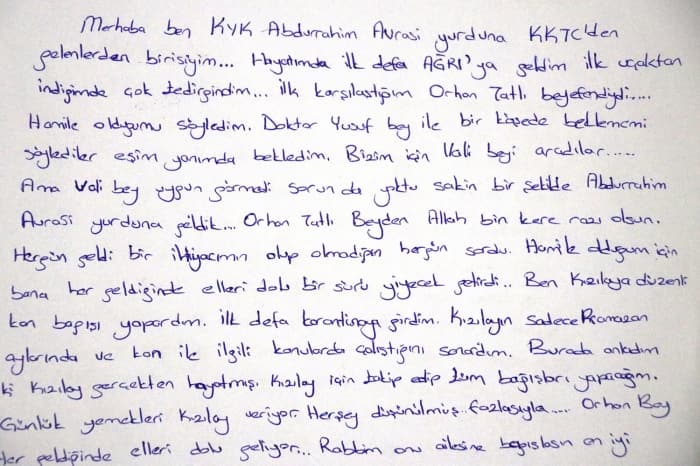 Merhaba ben KYK Abdurrahim Avrasi yurduna KKTC'den
gelenlerden birisiyim... Hayatımda ilk defa AĞRI'ya geldim ilk uçaktan
indiğimde çok tedirgindim... ilk karşılaştığım Orhan Tatlı beyefendiydi.....
Hamile olduğumu söyledim. Doktor Yusuf bey ile bir köşede beklememi
söylediler eşim yanımda bekledim. Bizim için Vali beyi aradılar.....
Ama Vali bey uygun görmedi sorun da yoktu sakin bir şekilde Abdurrahim
Avrasi yurduna geldik... Orhan Tatlı Beyden Allah bin kere razı olsun.
Hergün geldi bir ihtiyacımın olup olmadığını hergün sordu. Hamile olduğum için
bana her geldiğinde elleri dolu bir sürü yiyecek getirdi.. Ben Kızılaya düzenli
kan bağışı yapardım. ilk defa karantinaya girdim. Kızılayın sadece Ramazan
aylarında ve kan ile ilgili konularda çalıştığını sanardım. Burada anladım
ki Kızılay gerçekten hayatmış. Kızılay için takip edip tüm bağışları yapacağım.
Günlük yemekleri Kızılay veriyor. Herşey düşünülmüş.. fazlasıyla.... Orhan Bey
Her geldiğinde elleri dolu geliyor... Rabbim onu ailesine bağışlasın en iyi